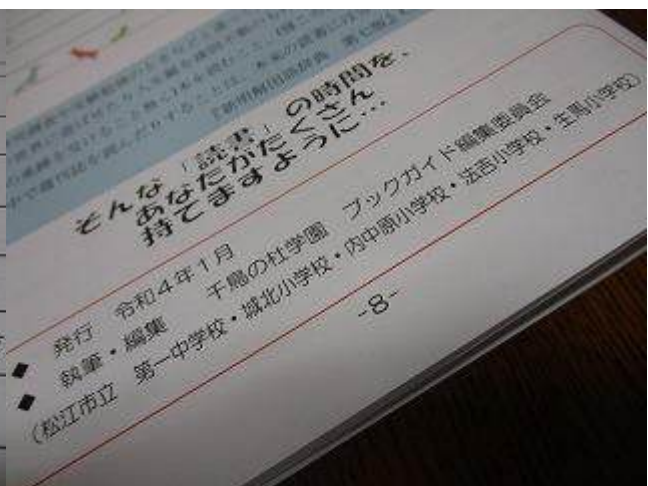 そんな「読書」の時間を、
あなたがたくさん
持てますように…
◆ 発行 令和4年1月
◆ 執筆・編集 千鳥の杜学園 ブックガイド編集委員会
(松江市立 第一中学校・城北小学校・内中原小学校・法吉小学校・生馬小学校)
-8-